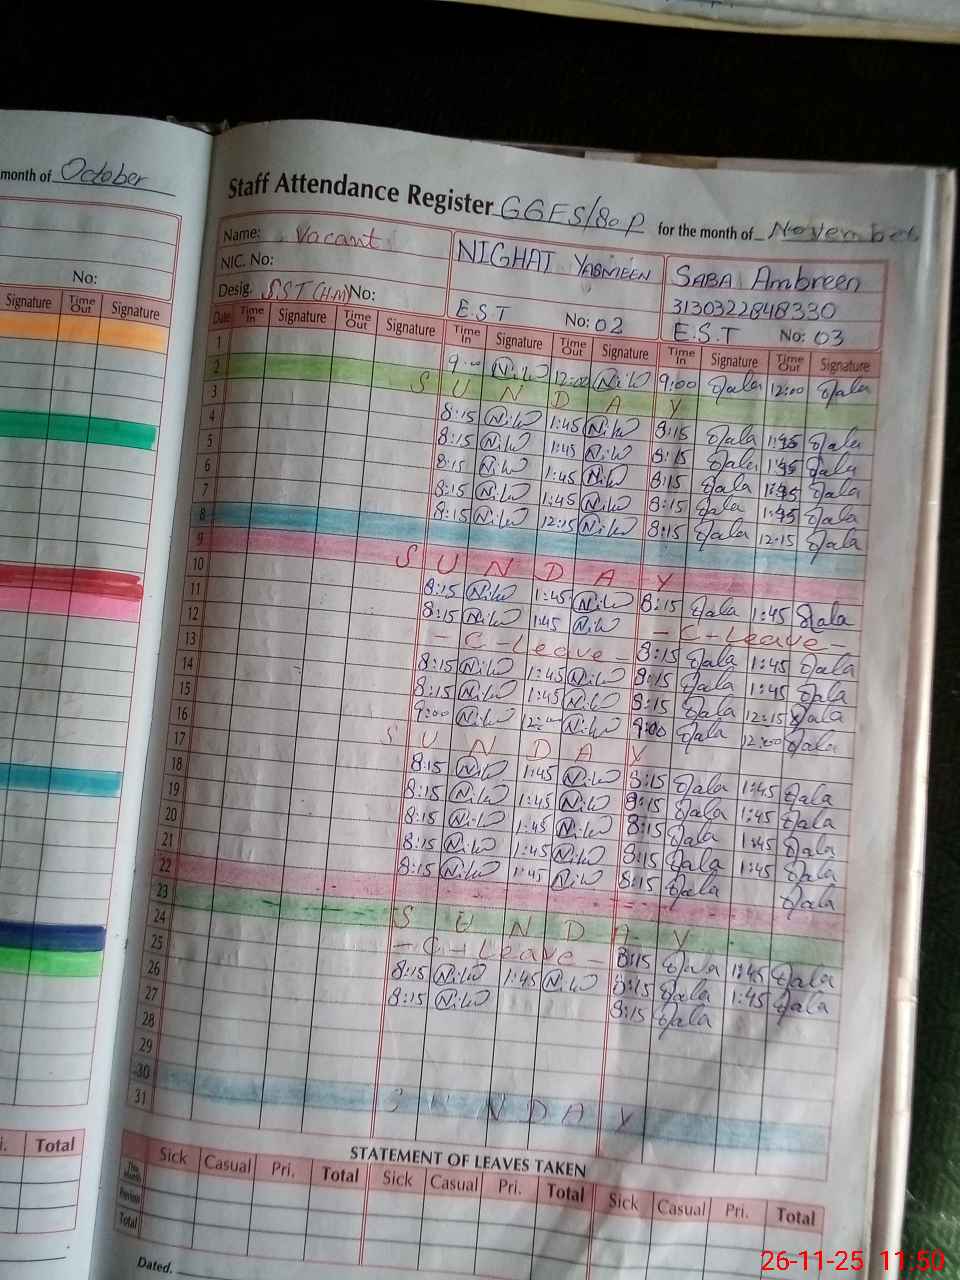 month of October
Staff Attendance Register GGES/80 P for the month of November
Name: Vacant NIGHAT YASMEEN SABA Ambreen
NIC. No: 3130322848330
No:
Desig. S.S.T (H.M) No: E.S.T No: 02 E.S.T No: 03
Signature Time Out Signature
Date Time In Signature Time Out Signature Time In Signature Time Out Signature Time In Signature Time Out Signature
1 9:00 12:00 9:00 12:00
2 S U N D A Y
3 8:15 1:45 8:15 1:45
4 8:15 1:45 8:15 1:45
5 8:15 1:45 8:15 1:45
6 8:15 1:45 8:15 1:45
7 8:15 12:15 8:15 12:15
8
9 S U N D A Y
10 8:15 1:45 8:15 1:45
11 8:15 1:45 - C - Leave -
12 - C - Leave - 8:15 1:45
13 8:15 1:45 8:15 1:45
14 8:15 1:45 8:15 12:15
15 9:00 12:00 9:00 12:00
16 S U N D A Y
17 8:15 1:45 8:15 1:45
18 8:15 1:45 8:15 1:45
19 8:15 1:45 8:15 1:45
20 8:15 1:45 8:15 1:45
21 8:15 1:45 8:15
22
23 S U N D A Y
24 - C - Leave - 8:15 1:45
25 8:15 1:45 8:15 1:45
26 8:15 8:15
27
28
29
30 S U N D A Y
31
STATEMENT OF LEAVES TAKEN
Total
Sick Casual Pri. Total Sick Casual Pri. Total Sick Casual Pri. Total
This Month
Previous
Total
Dated.
26-11-25 11:50